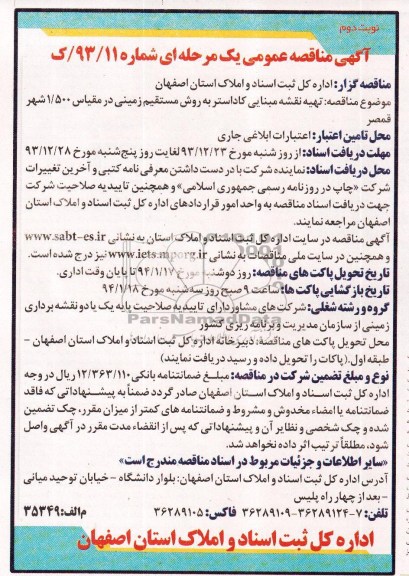 نوبت دوم
آگهی مناقصه عمومی یک مرحله ای شماره ۹۳/۱۱/ک
مناقصه گزار: اداره کل ثبت اسناد و املاک استان اصفهان
موضوع مناقصه: تهیه نقشه مبنایی کاداستر به روش مستقیم زمینی در مقیاس ۱/۵۰۰ شهر
قمصر
محل تامین اعتبار: اعتبارات ابلاغی جاری
مهلت دریافت اسناد: از روز شنبه مورخ ۹۳/۱۲/۲۳ لغایت روز پنج‌شنبه مورخ ۹۳/۱۲/۲۸
محل دریافت اسناد: نماینده شرکت با در دست داشتن معرفی نامه کتبی و آخرین تغییرات
شرکت «چاپ در روزنامه رسمی جمهوری اسلامی» و همچنین تاییدیه صلاحیت شرکت
جهت دریافت اسناد مناقصه به واحد امور قراردادهای اداره کل ثبت اسناد و املاک استان
اصفهان مراجعه نمایند.
آگهی مناقصه در سایت اداره کل ثبت اسناد و املاک استان به نشانی www.sabt-es.ir
و همچنین در سایت ملی مناقصات به نشانی www.iets.mporg.ir نیز درج شده است.
تاریخ تحویل پاکت های مناقصه: روز دوشنبه مورخ ۹۴/۱/۱۷ تا پایان وقت اداری.
تاریخ بازگشایی پاکت ها: ساعت ۹ صبح روز سه شنبه مورخ ۹۴/۱/۱۸
گروه و رشته شغلی: شرکت های مشاور دارای تاییدیه صلاحیت پایه یک یا دو نقشه برداری
زمینی از سازمان مدیریت و برنامه ریزی کشور
محل تحویل پاکت های مناقصه: دبیرخانه اداره کل ثبت اسناد و املاک استان اصفهان -
طبقه اول. (پاکات را تحویل داده و رسید دریافت نمایند)
نوع و مبلغ تضمین شرکت در مناقصه: مبلغ ضمانتنامه بانکی ۱۲/۳۶۳/۱۱۰ ریال در وجه
اداره کل ثبت اسناد و املاک استان اصفهان صادر گردد ضمناً به پیشنهاداتی که فاقد
ضمانتنامه یا امضاء مخدوش و مشروط و ضمانتنامه های کمتر از میزان مقرر، چک تضمین
شده و چک شخصی و نظایر آن و پیشنهاداتی که پس از انقضاء مدت مقرر در آگهی واصل
شود، مطلقاً ترتیب اثر داده نخواهد شد.
«سایر اطلاعات و جزئیات مربوط در اسناد مناقصه مندرج است»
آدرس اداره کل ثبت اسناد و املاک استان اصفهان: بلوار دانشگاه - خیابان توحید میانی
- بعد از چهار راه پلیس
تلفن: ۷-۳۶۲۸۹۱۲۴-۳۶۲۸۹۱۰۹ فاکس: ۳۶۲۸۹۱۰۵ م الف: ۳۵۳۴۹
اداره کل ثبت اسناد و املاک استان اصفهان